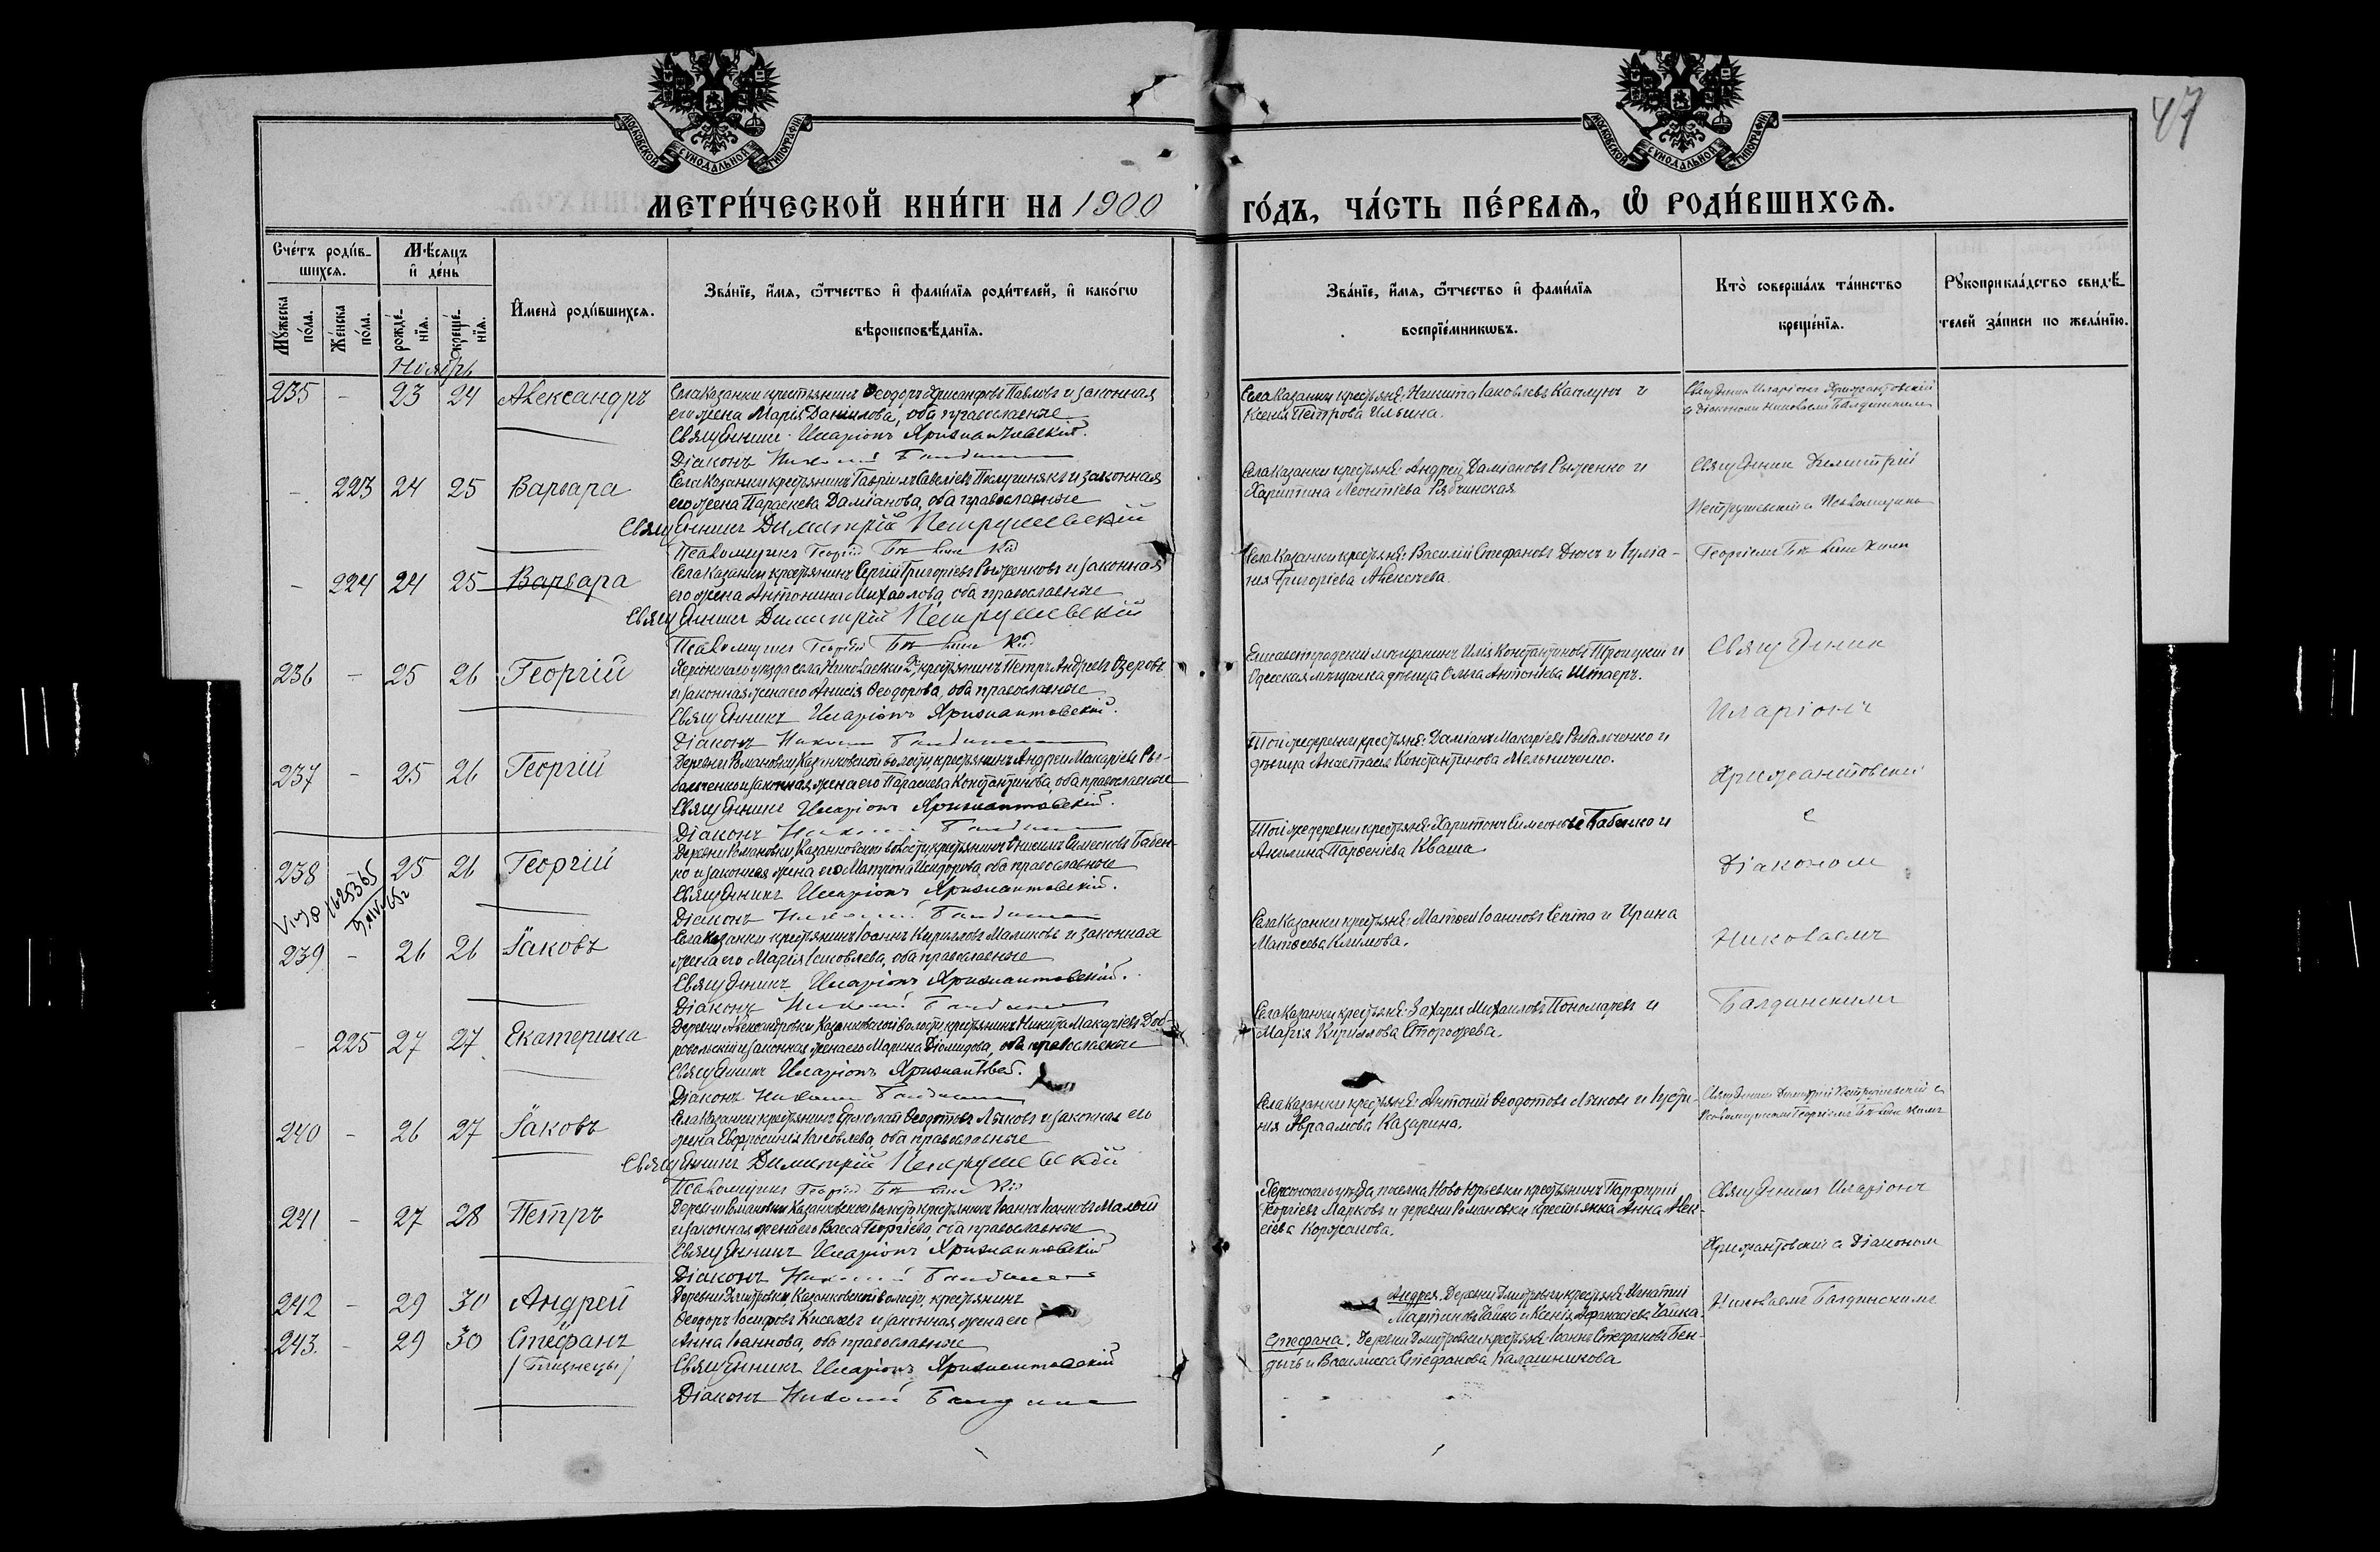 47
МОСКОВСКОЙ СѴНОДАЛЬНОЙ ТИПОГРАФІИ
МОСКОВСКОЙ СѴНОДАЛЬНОЙ ТИПОГРАФІИ
МЕТРИ́ЧЕСКОЙ КНИ́ГИ НА 1900 ГО́ДЪ, ЧА́СТЬ ПЕ́РВАѦ, Ѡ РОДИ́ВШИХСѦ.
Сче́тъ роди́в-
шихсѧ.
Мѣ́сѧцъ
и де́нь
Мꙋ́жеска
по́ла.
Же́нска
по́ла.
рожде́-
нїѧ.
креще́-
нїѧ.
Имена̀ роди́вшихсѧ.
Зва́нїе, и́мѧ, ѻ́тчество и фами́лїѧ роди́телей, и како́гѡ
вѣроисповѣ́данїѧ.
Зва́нїе, и́мѧ, ѻ́тчество и фами́лїѧ
воспрїе́мникѡвъ.
Кто̀ соверша́лъ та́инство
креще́нїѧ.
Рꙋкоприкла́дство свидѣ́-
телей за́писи по жела́нїю.
Ноябрь
235 - 23 24 Александръ
Села Казанки крестьянинъ Ѳеодоръ Хрисанфовъ Павловъ и законная
его жена Марія Даниилова, оба православные
Священникъ Иларіонъ Хрисантовскій.
Діаконъ Николай
Села Казанки крестьяне: Никита Іаковлевъ Каплунъ и
Ксенія Петрова Ильина.
Священник Иларіонъ Хрисантовскій
с діакономъ Николаемъ Балдинскимъ
- 223 24 25 Варвара
Села Казанки крестьянинъ Гавріилъ Савеліевъ и законная
его жена Параскева Даміанова, оба православные
Священникъ Димитрій Петрушевскій
Псаломщикъ Георгій
Села Казанки крестьяне: Андрей Даміановъ Рыженко и
Харитина Леонтіева Рябчинская
Священник Димитрій
Петрушевскій с Псаломщикомъ
- 224 24 25 Варвара
Села Казанки крестьянинъ Сергій Григорьевъ Рыженковъ и законная
его жена Антонина Михайлова, оба православные
Священникъ Димитрій Петрушевскій
Псаломщикъ Георгій
Села Казанки крестьяне: Василій Стефановъ Дюкъ и Іуліа-
нія Григоріева Алексѣева.
Георгіемъ
236 - 25 26 Георгій
Херсонскаго уѣзда села Николаевки 2й, крестьянинъ Петръ Андреевъ Озеровъ
и законная жена его Анисія Ѳеодорова, оба православные
Священникъ Иларіонъ Хрисантовскій.
Діаконъ Николай
Елисаветградский мѣщанинъ Илія Константиновъ Троицкій и
Одесская мѣщанка дѣвица Ольга Антоніева Штаеръ.
Священник
Иларіонъ
237 - 25 26 Георгій
Деревни Романовки, Казанковской волости крестьянинъ Андрей Макаріевъ Ры-
бальченко и законная жена его Параскева Константинова, оба православные
Священникъ Иларіонъ Хрисантовскій.
Діаконъ Николай
Той же деревни крестьяне: Даміанъ Макаріевъ Рыбальченко и
дѣвица Анастасія Константинова Мельниченко.
Хрисантовскій
с
238 25 26 Георгій
Деревни Романовки, Казанковской волости, крестьянинъ Онисимъ Симеоновъ Бабен-
ко и законная жена его Матрона Исидорова, оба православные
Священникъ Иларіонъ Хрисантовскій.
Діаконъ Николай
Той же деревни крестьяне: Харитонъ Симеоновъ Бабенко и
Акилина Парѳеніева Кваша.
Діакономъ
239 - 26 26 Іаковъ
Села Казанки крестьянинъ Іоаннъ Кирилловъ Маликовъ и законная
жена его Марія Іаковлева, оба православные
Священникъ Иларіонъ Хрисантовскій.
Діаконъ Николай
Села Казанки крестьяне: Матѳей Іоанновъ Септа и Ирина
Матѳеева Климова.
Николаемъ
- 225 27 27 Екатерина
Деревни Александровки Казанковской волости, крестьянинъ Никита Макаріевъ Доб-
ровольскій и законная жена его Марина Діомидова, оба православные
Священникъ Иларіонъ
Діаконъ Николай
Села Казанки крестьяне: Захарія Михаиловъ Пономаревъ и
Марія Кириллова Сторожева.
Балдинскимъ
240 - 26 27 Іаковъ
Села Казанки крестьянинъ Ермолай Ѳеодотовъ Лыковъ и законная его
жена Евфросинія Іаковлева, оба православные
Священникъ Димитрій Петрушевскій
Псаломщикъ Георгій
Села Казанки крестьяне: Антоній Ѳеодотовъ Лыковъ и Іусти-
нія Авраамова Казарина.
Священникъ Димитрій Петрушевскій с
Псаломщикомъ Георгіемъ
241 - 27 28 Петръ
Деревни Романовки Казанковской волости крестьянинъ Іоаннъ Іоанновъ Малый
и законная жена его Васса Георгіева, оба православные
Священникъ Иларіонъ Хрисантовскій
Діаконъ Николай
Херсонскаго уѣзда, поселка Ново-Юрьевки крестьянинъ Парфирій
Георгіевъ Марковъ и деревни Романовки крестьянка Анна Алек-
сіева Коржанова.
Священникъ Иларіонъ
Хрисантовскій с Діакономъ
242 - 29 30 Андрей
243. - 29 30 Стефанъ
(Близнецы)
Деревни Дмитровки, Казанковской волости, крестьянинъ
Ѳеодоръ Іосифовъ Киселевъ и законная жена его
Анна Іоаннова, оба православные
Священникъ Иларіонъ Хрисантовскій
Діаконъ Николай
Андрея. Деревни Дмитровки крестьяне: Игнатій
Мартиновъ Чайка и Ксенія Аѳанасіева Чайка.
Стефана. Деревни Дмитровки крестьяне: Іоаннъ Стефановъ Бен-
дычъ и Василисса Стефанова Калашникова.
Николаемъ Балдинскимъ